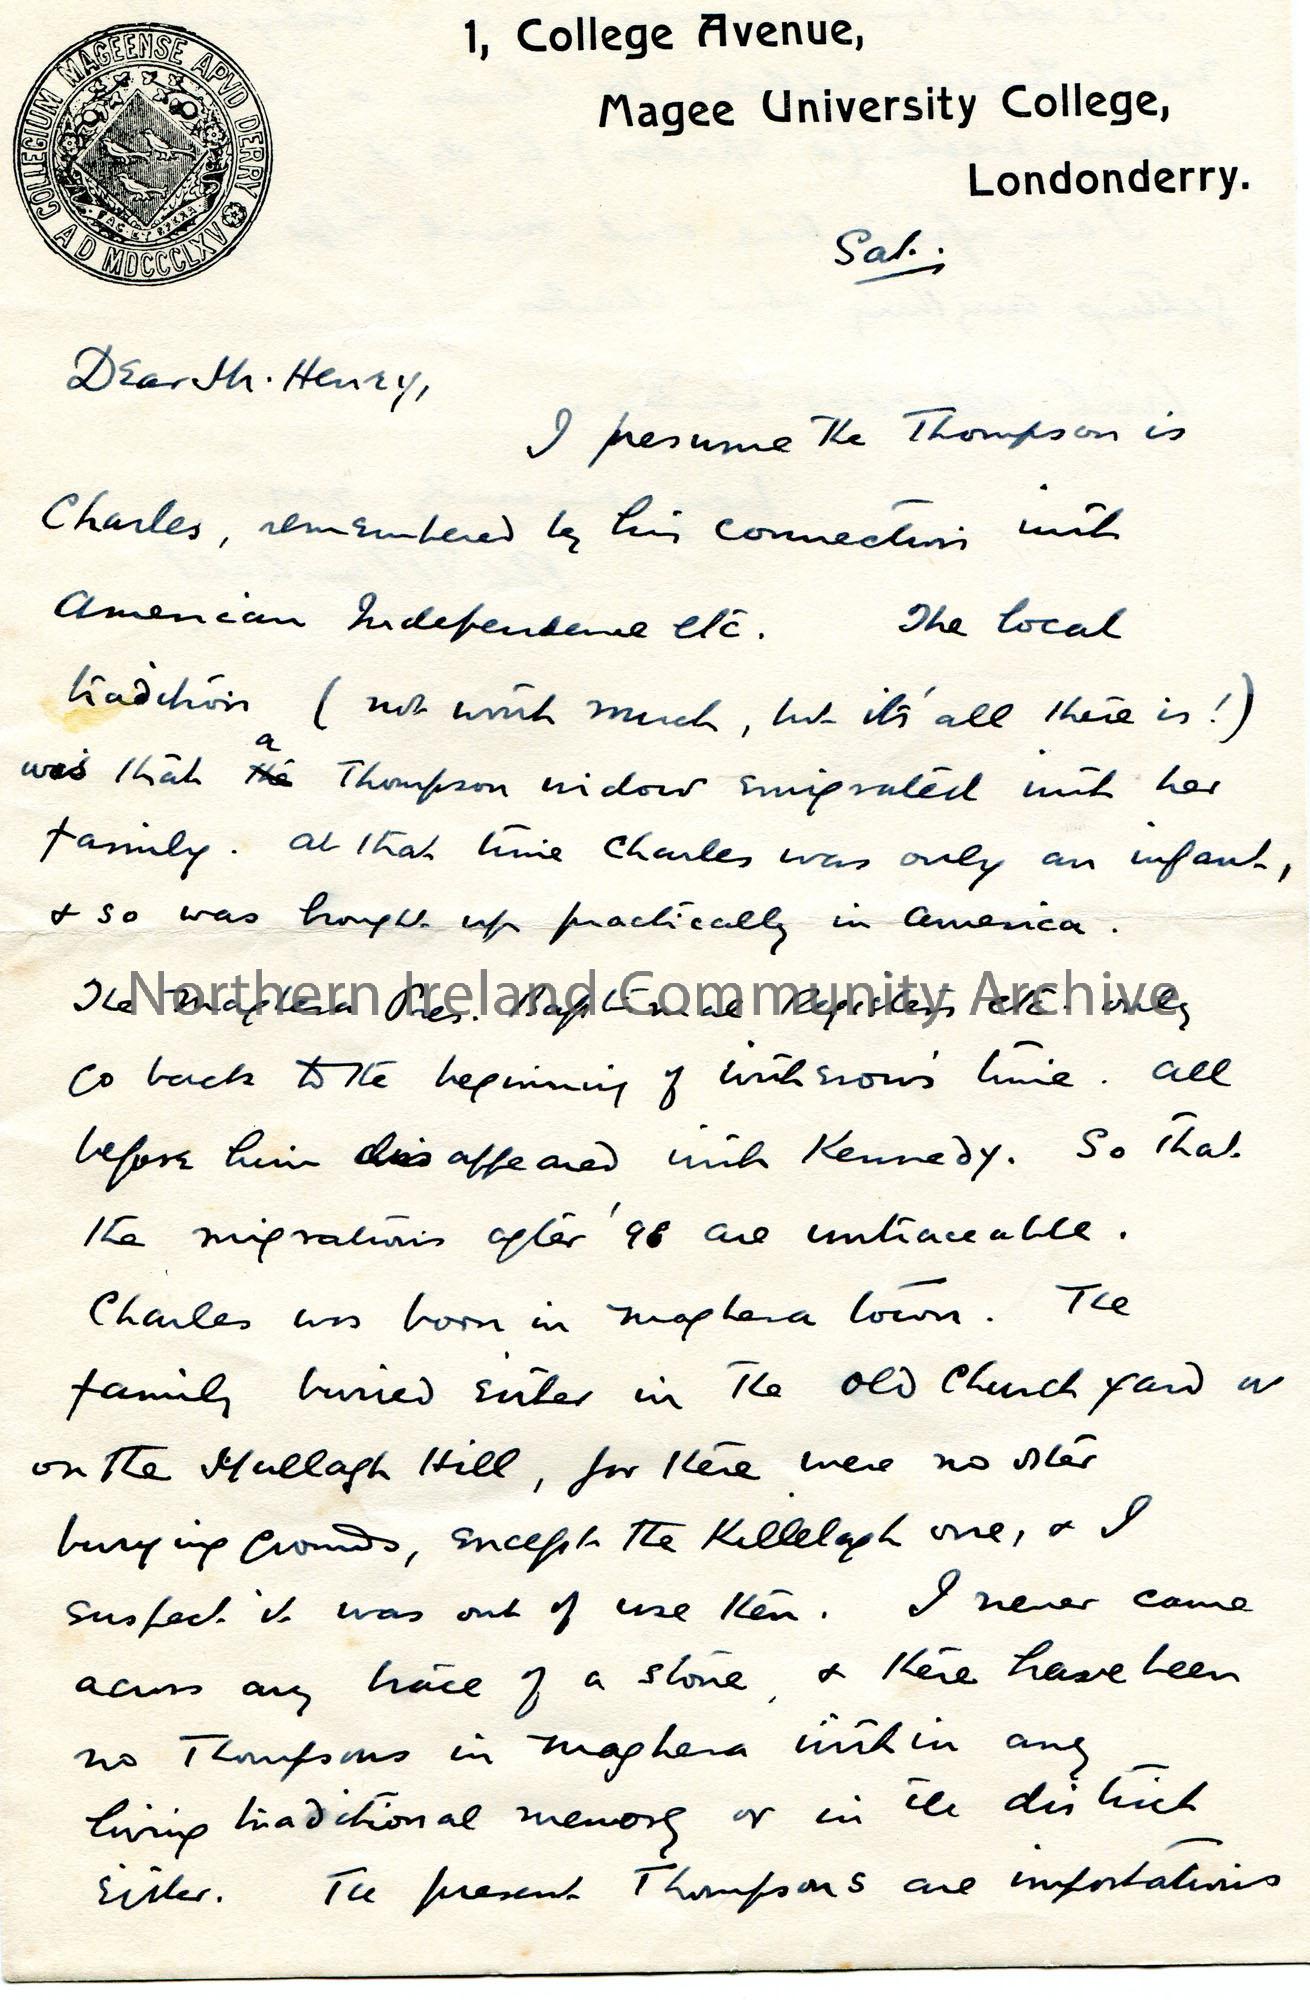 1, College Avenue,
Magee University College,
Londonderry.
COLLEGIUM MAGEENSE APVD DERRY
AD MDCCCLXV
Sat.
Dear Mr. Henry,
I presume the Thompson is
Charles, remembered by his connection with
American Independence etc. The local
tradition (not worth much, but it's all there is!)
was that the a Thompson widow emigrated with her
family. At that time Charles was only an infant,
& so was brought up practically in America.
Northern Ireland Community Archive
The Maghera Pres. Baptismal Registers etc. only
go back to the beginning of Witherow's time. All
before him disappeared with Kennedy. So that
the migrations after '98 are untraceable.
Charles was born in Maghera town. The
family buried either in the Old Church yard or
on the Mullagh Hill, for there were no other
burying grounds, except the Killelagh one, & I
suspect it was out of use then. I never came
across any trace of a stone, & there have been
no Thompsons in Maghera within any
living traditional memory or in the district
either. The present Thompsons are importations